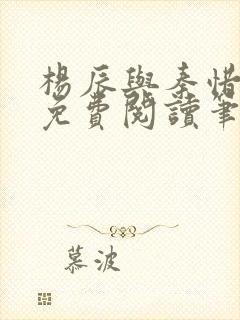 楊辰與秦惜
免費閱讀筆
慕波